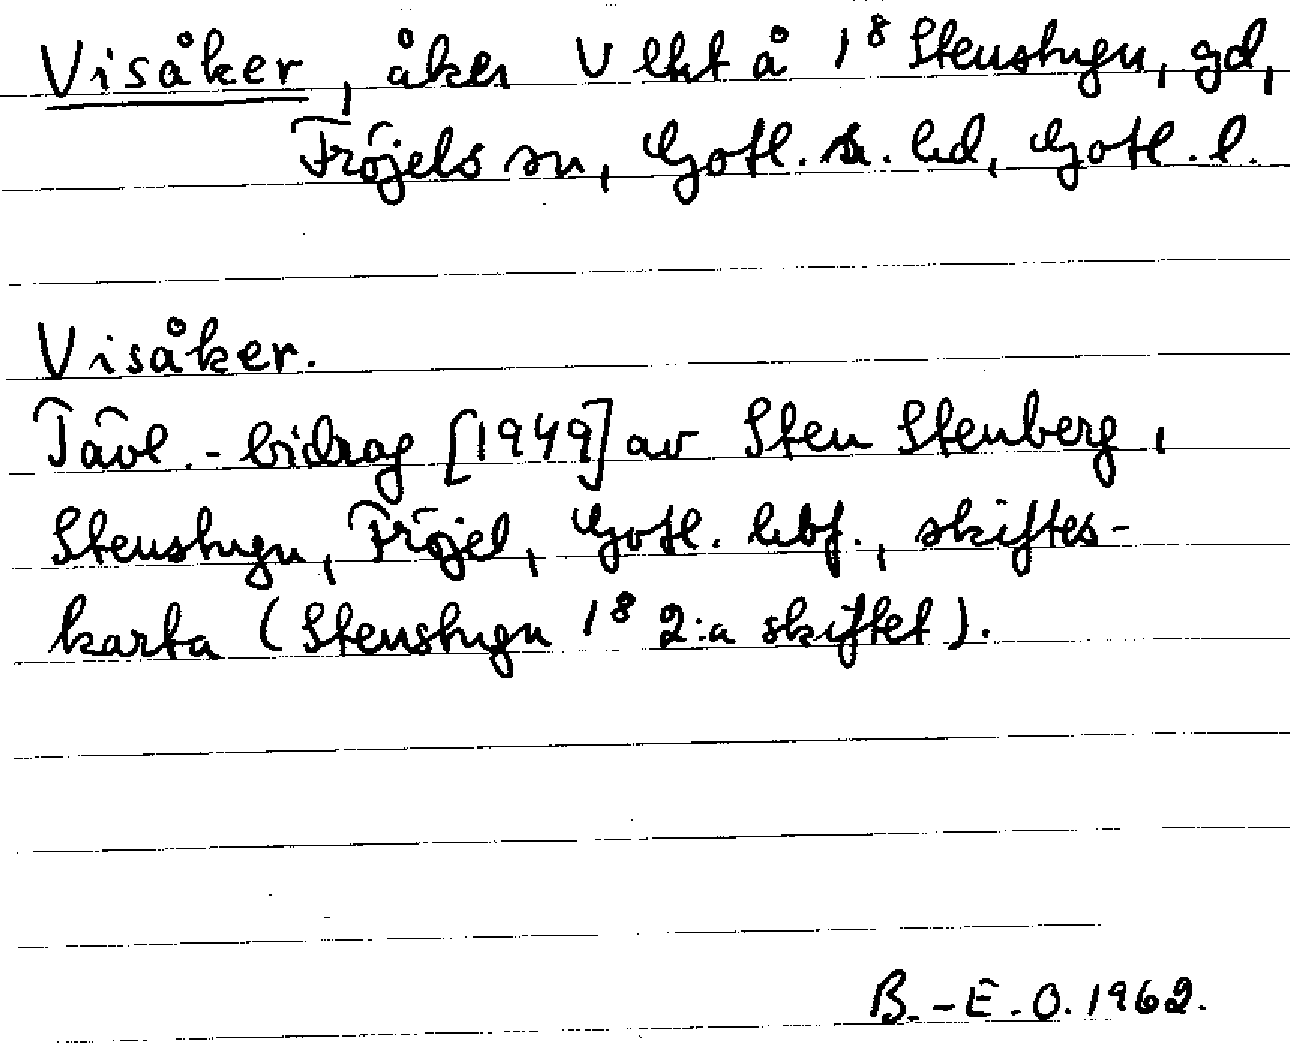 Visåker, åker V elht å 1⁸ Stenstugu, gd,
Fröjels sn, Gotl. s. hd, Gotl. l.
Visåker.
Tävl.-bidrag [1949] av Sten Stenberg,
Stenstugu, Fröjel, Gotl. hbf., skiftes-
karta (Stenstugu 1⁸ 2:a skiftet).
B.-E.O. 1962.